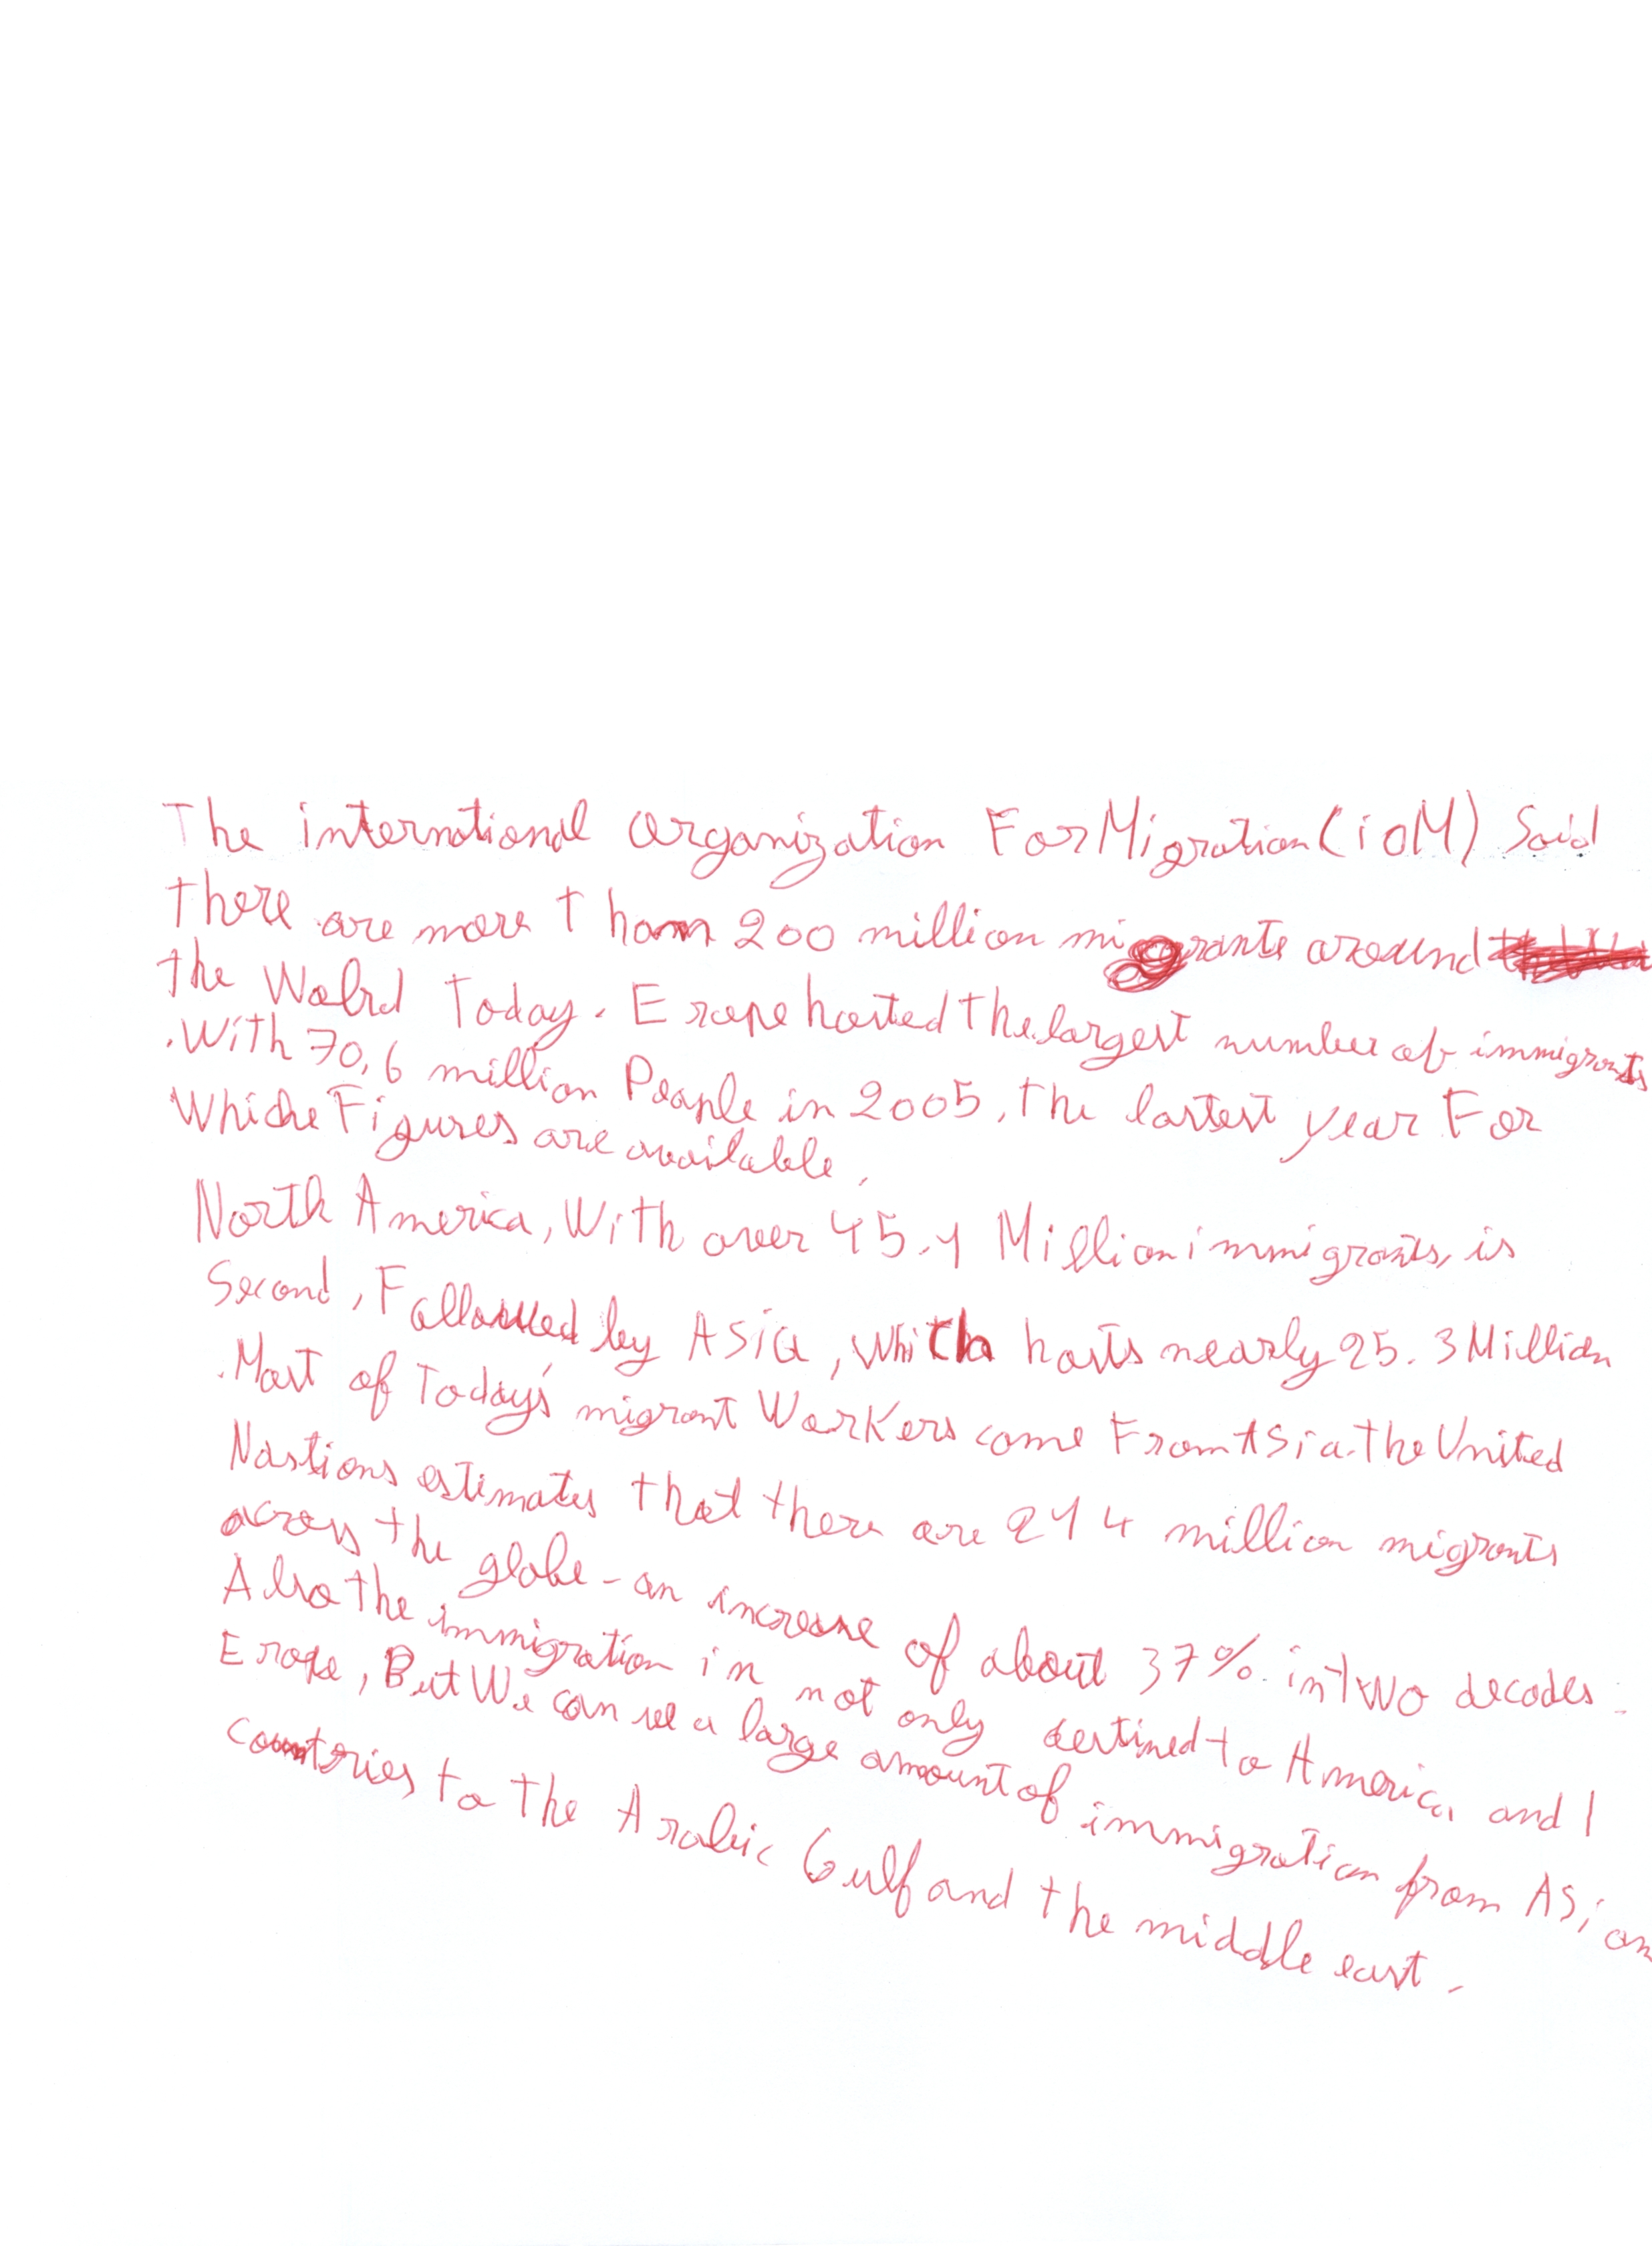 The international organization For Migration (ioM) Said
there are more than 200 million migrants around
the Wolrd Today. Erope hosted the largest number of immigrants
.With 70,6 million People in 2005, the lastest year For
Whiche Figures are available,
North America, With over 45.1 Million immigrants, is
Second, Followed by ASia, which hosts nearly 25.3 Million
.Most of Today's migrant Workers come From ASia.the United
Nastions estimates that there are 214 million migrants
across the globe - an increase of about 37% in two decades.
Also the immigration in not only destined to America and
Erope, But We can see a large amount of immigration from ASian
countries to the Arabic Gulf and the middle east.